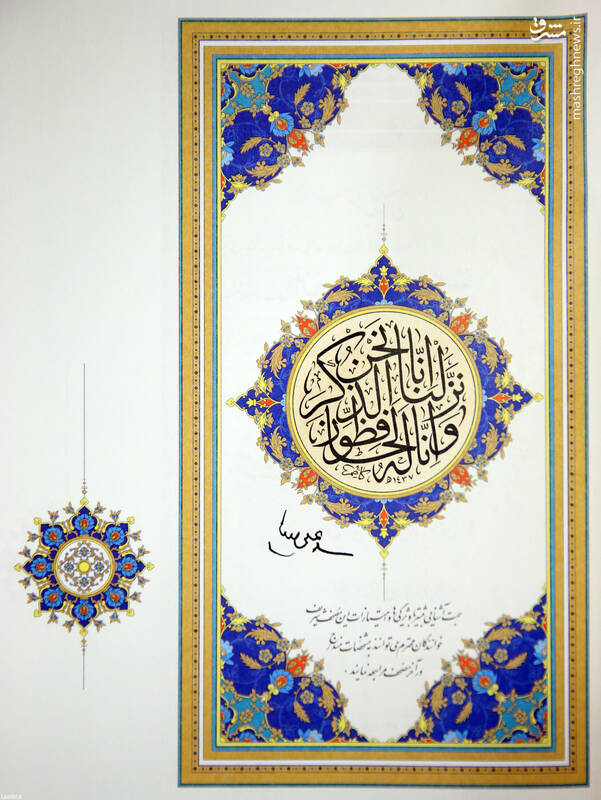 مشرق
mashreghnews.ir
انا نحن نزلنا الذكر
وانا له لحافظون
۱۴۳۷ه
جهت آشنایی بیشتر با ویژگی‌ها و امتیازات این مصحف شریف
خوانندگان محترم می توانند به مشخصات مندرج
در آخر مصحف مراجعه نمایند.